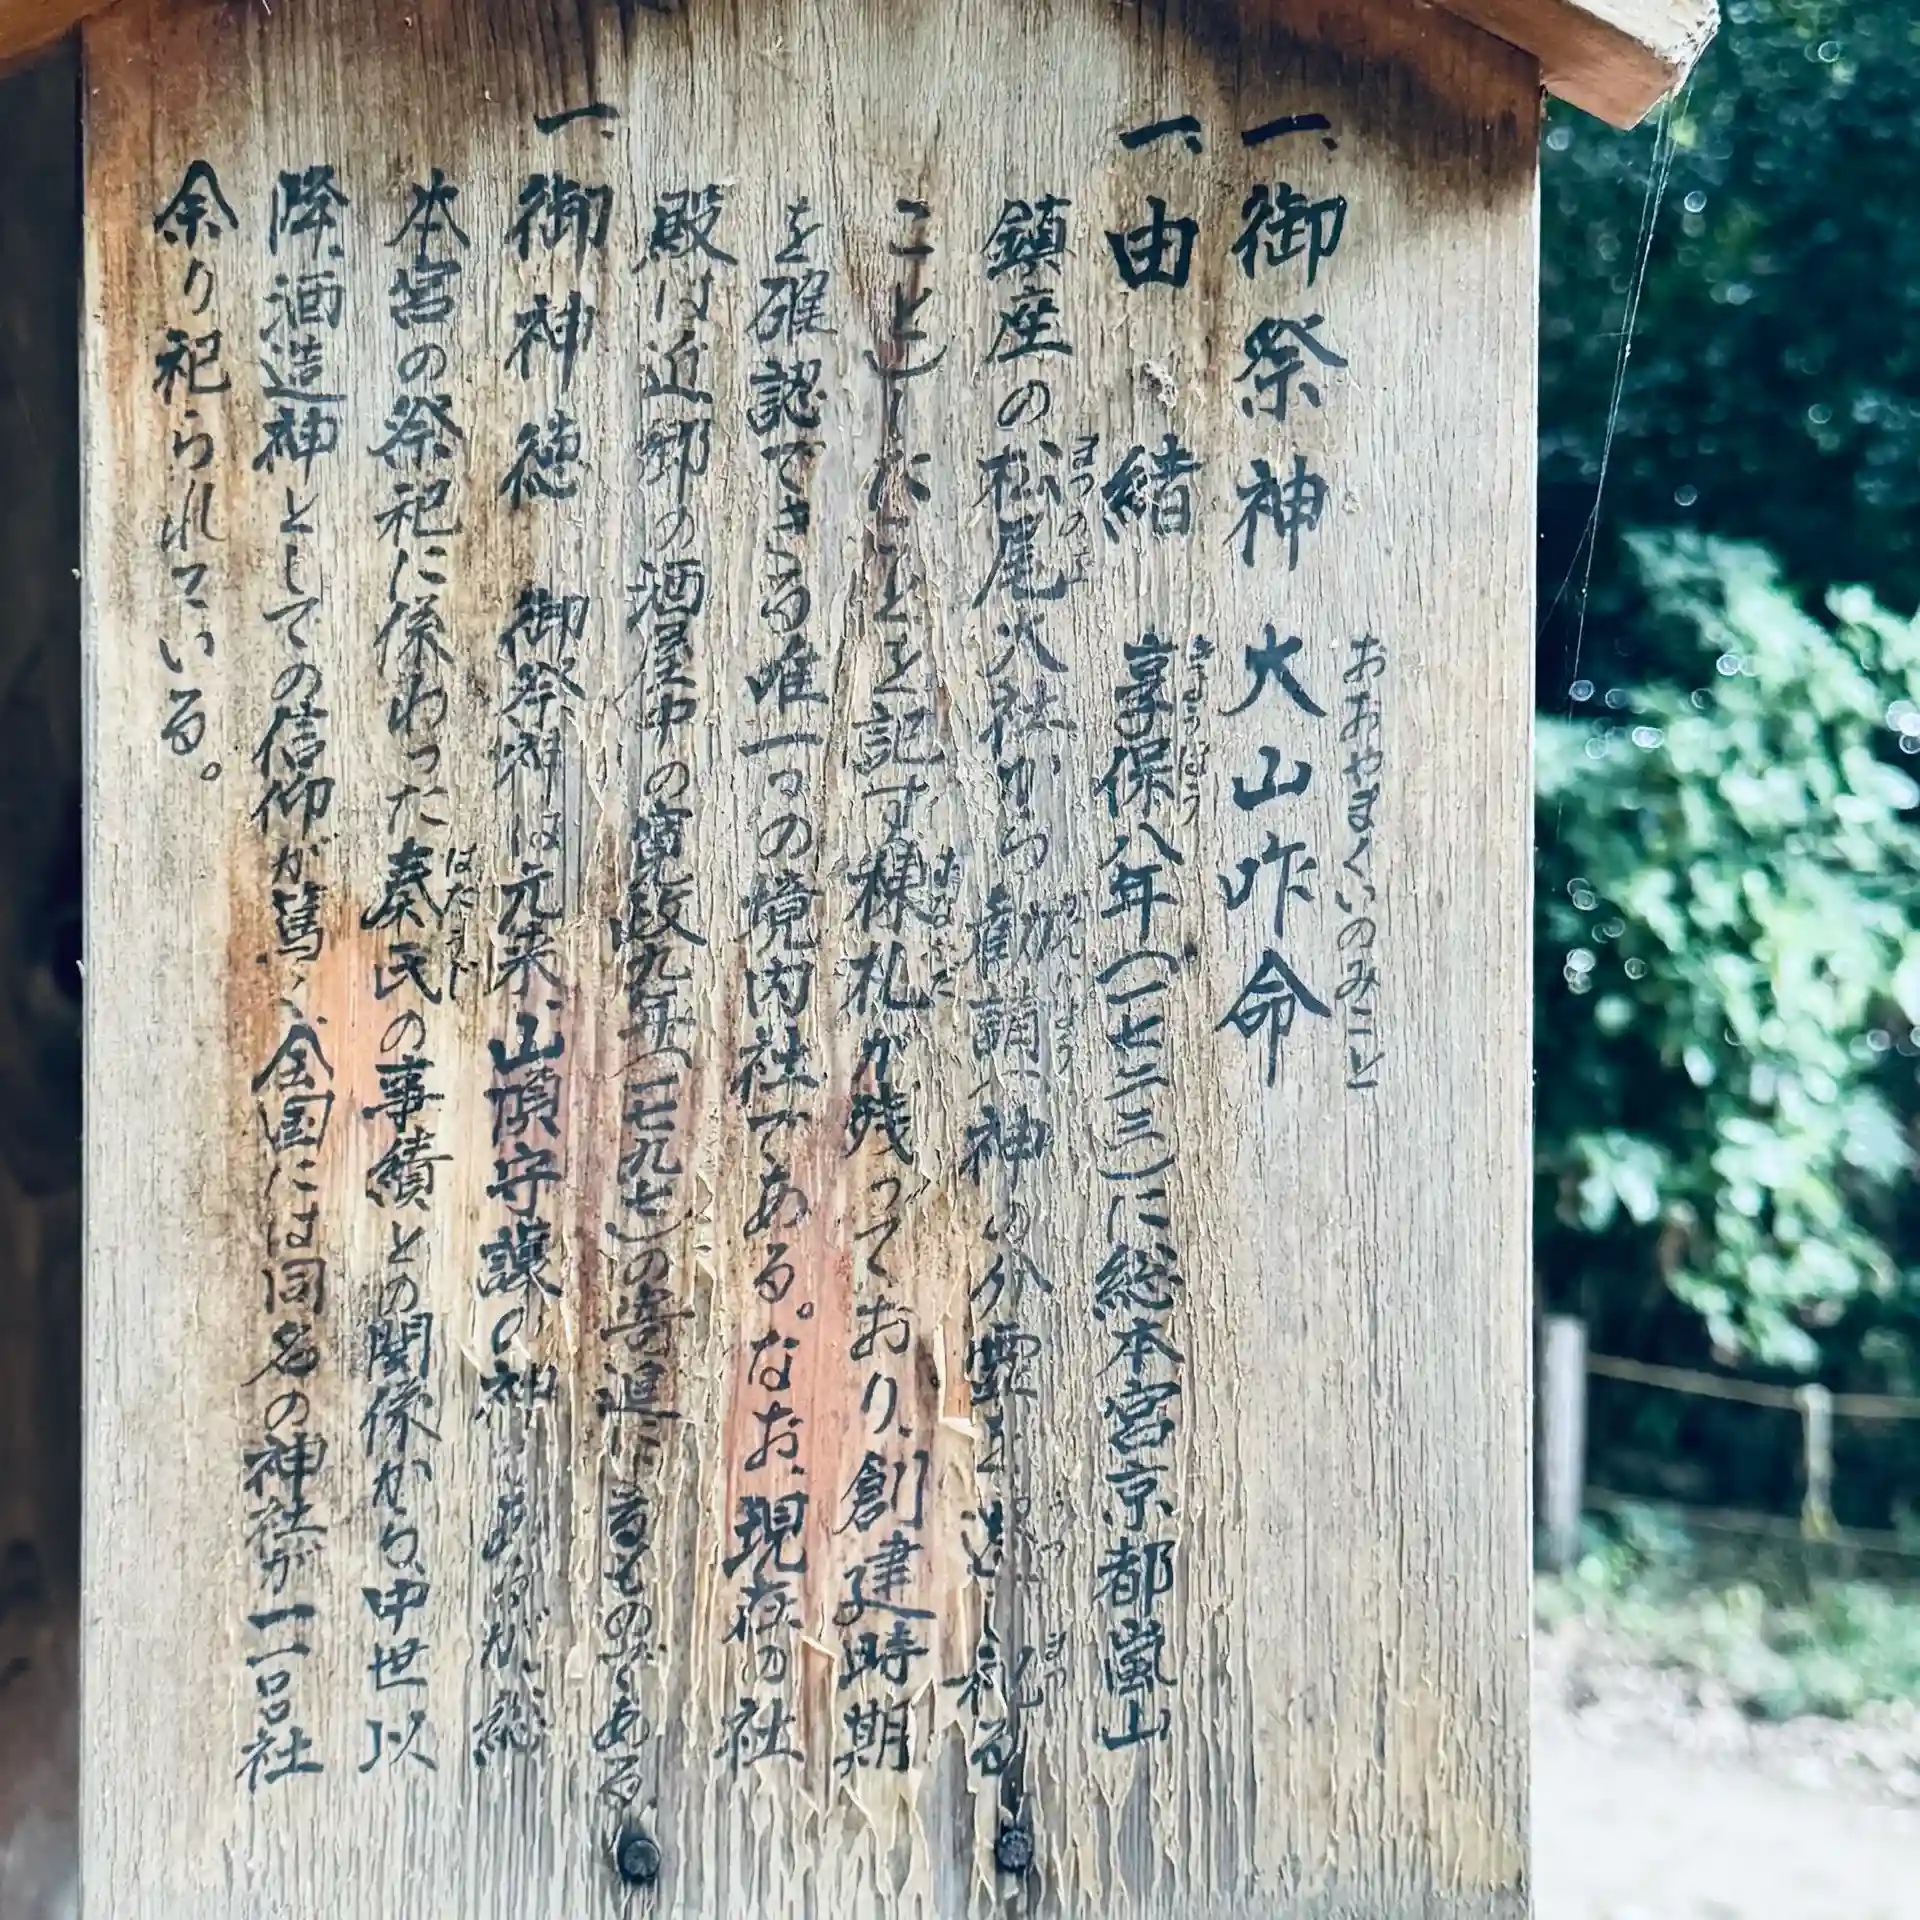 おおやまくいのみこと
一、御祭神 大山咋命
きょうほう
一、由 緒 享保八年(一七二三)に総本宮京都嵐山
まつのお かんじょう うつ まつ
鎮座の松尾大社から勧請、神の分霊を遷し祀る
むなふだ
こととしたことを記す棟札が残っており、創建時期
を確認できる唯一つの境内社である。なお、現在の社
殿は近郷の酒屋中の寛政九年(一七九七)の寄進によるものである
一、御神徳 御祭神は元来、山頂守護の神であるが、総
はたうじ
本宮の祭祀に係わった秦氏の事績との関係から、中世以
降、酒造神としての信仰が篤く、全国には同名の神社が一一〇社
余り祀られている。